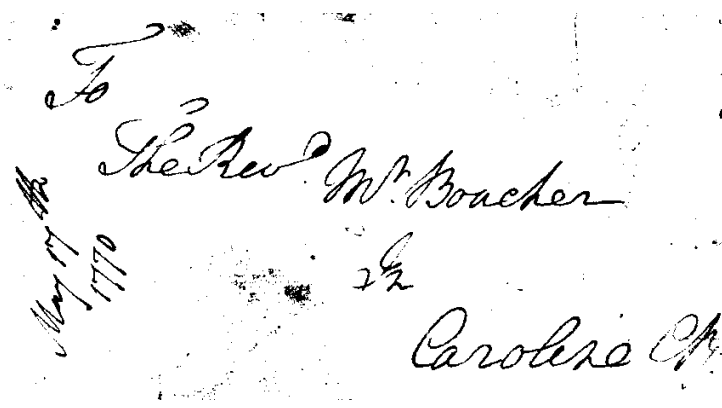 To
The Revd Mr. Boucher
in
Caroline
May 17th
1770